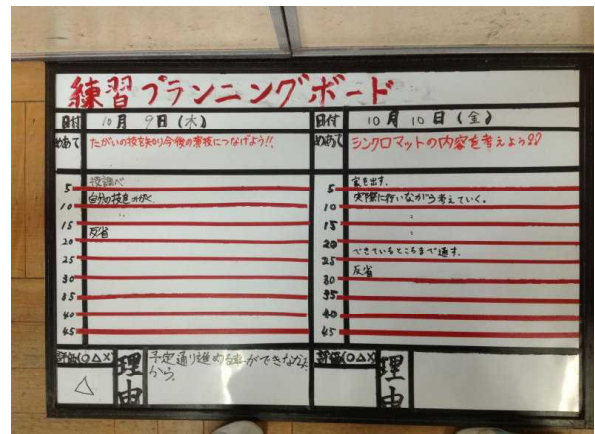 練習プランニングボード
日付 10月 9日(木)
めあて たがいの技を知り今後の演技につなげよう!!
技調べ
5
自分の技をみがく
10
〃
15
反省
20
25
30
35
40
45
評価(○△×) 理由 予定通り進める事ができなかったから。
△
日付 10月 10日(金)
めあて シンクロマットの内容を考えよう!!
案を出す。
5
実際に行いながら考えていく。
10
〃
15
〃
20
できているところまで通す。
25
反省
30
35
40
45
評価(○△×) 理由